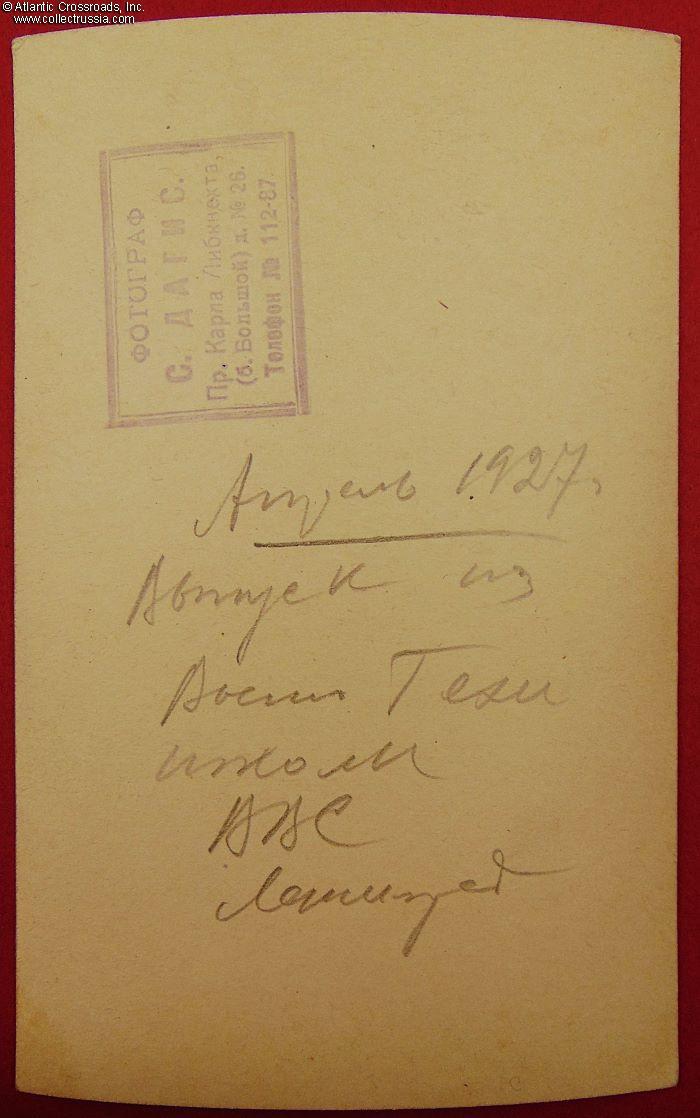 © Atlantic Crossroads, Inc.
www.collectrussia.com
ФОТОГРАФ
С. ДАГИС.
Пр. Карла Либкнехта,
(б. Большой) д. № 26.
Телефон № 112-87.
Апрель 1927г.
Выпуск из
Воен. Техн
школы
ВВС
Ленинград